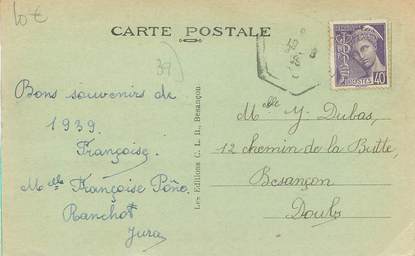 10€
CARTE POSTALE
39
POSTES 40
Bons souvenirs de
1939.
Françoise.
Mlle Françoise
Ranchot
Jura
Les Editions C. L. B., Besançon
Melle Y. Dubas,
12 chemin de la Butte,
Besançon
Doubs